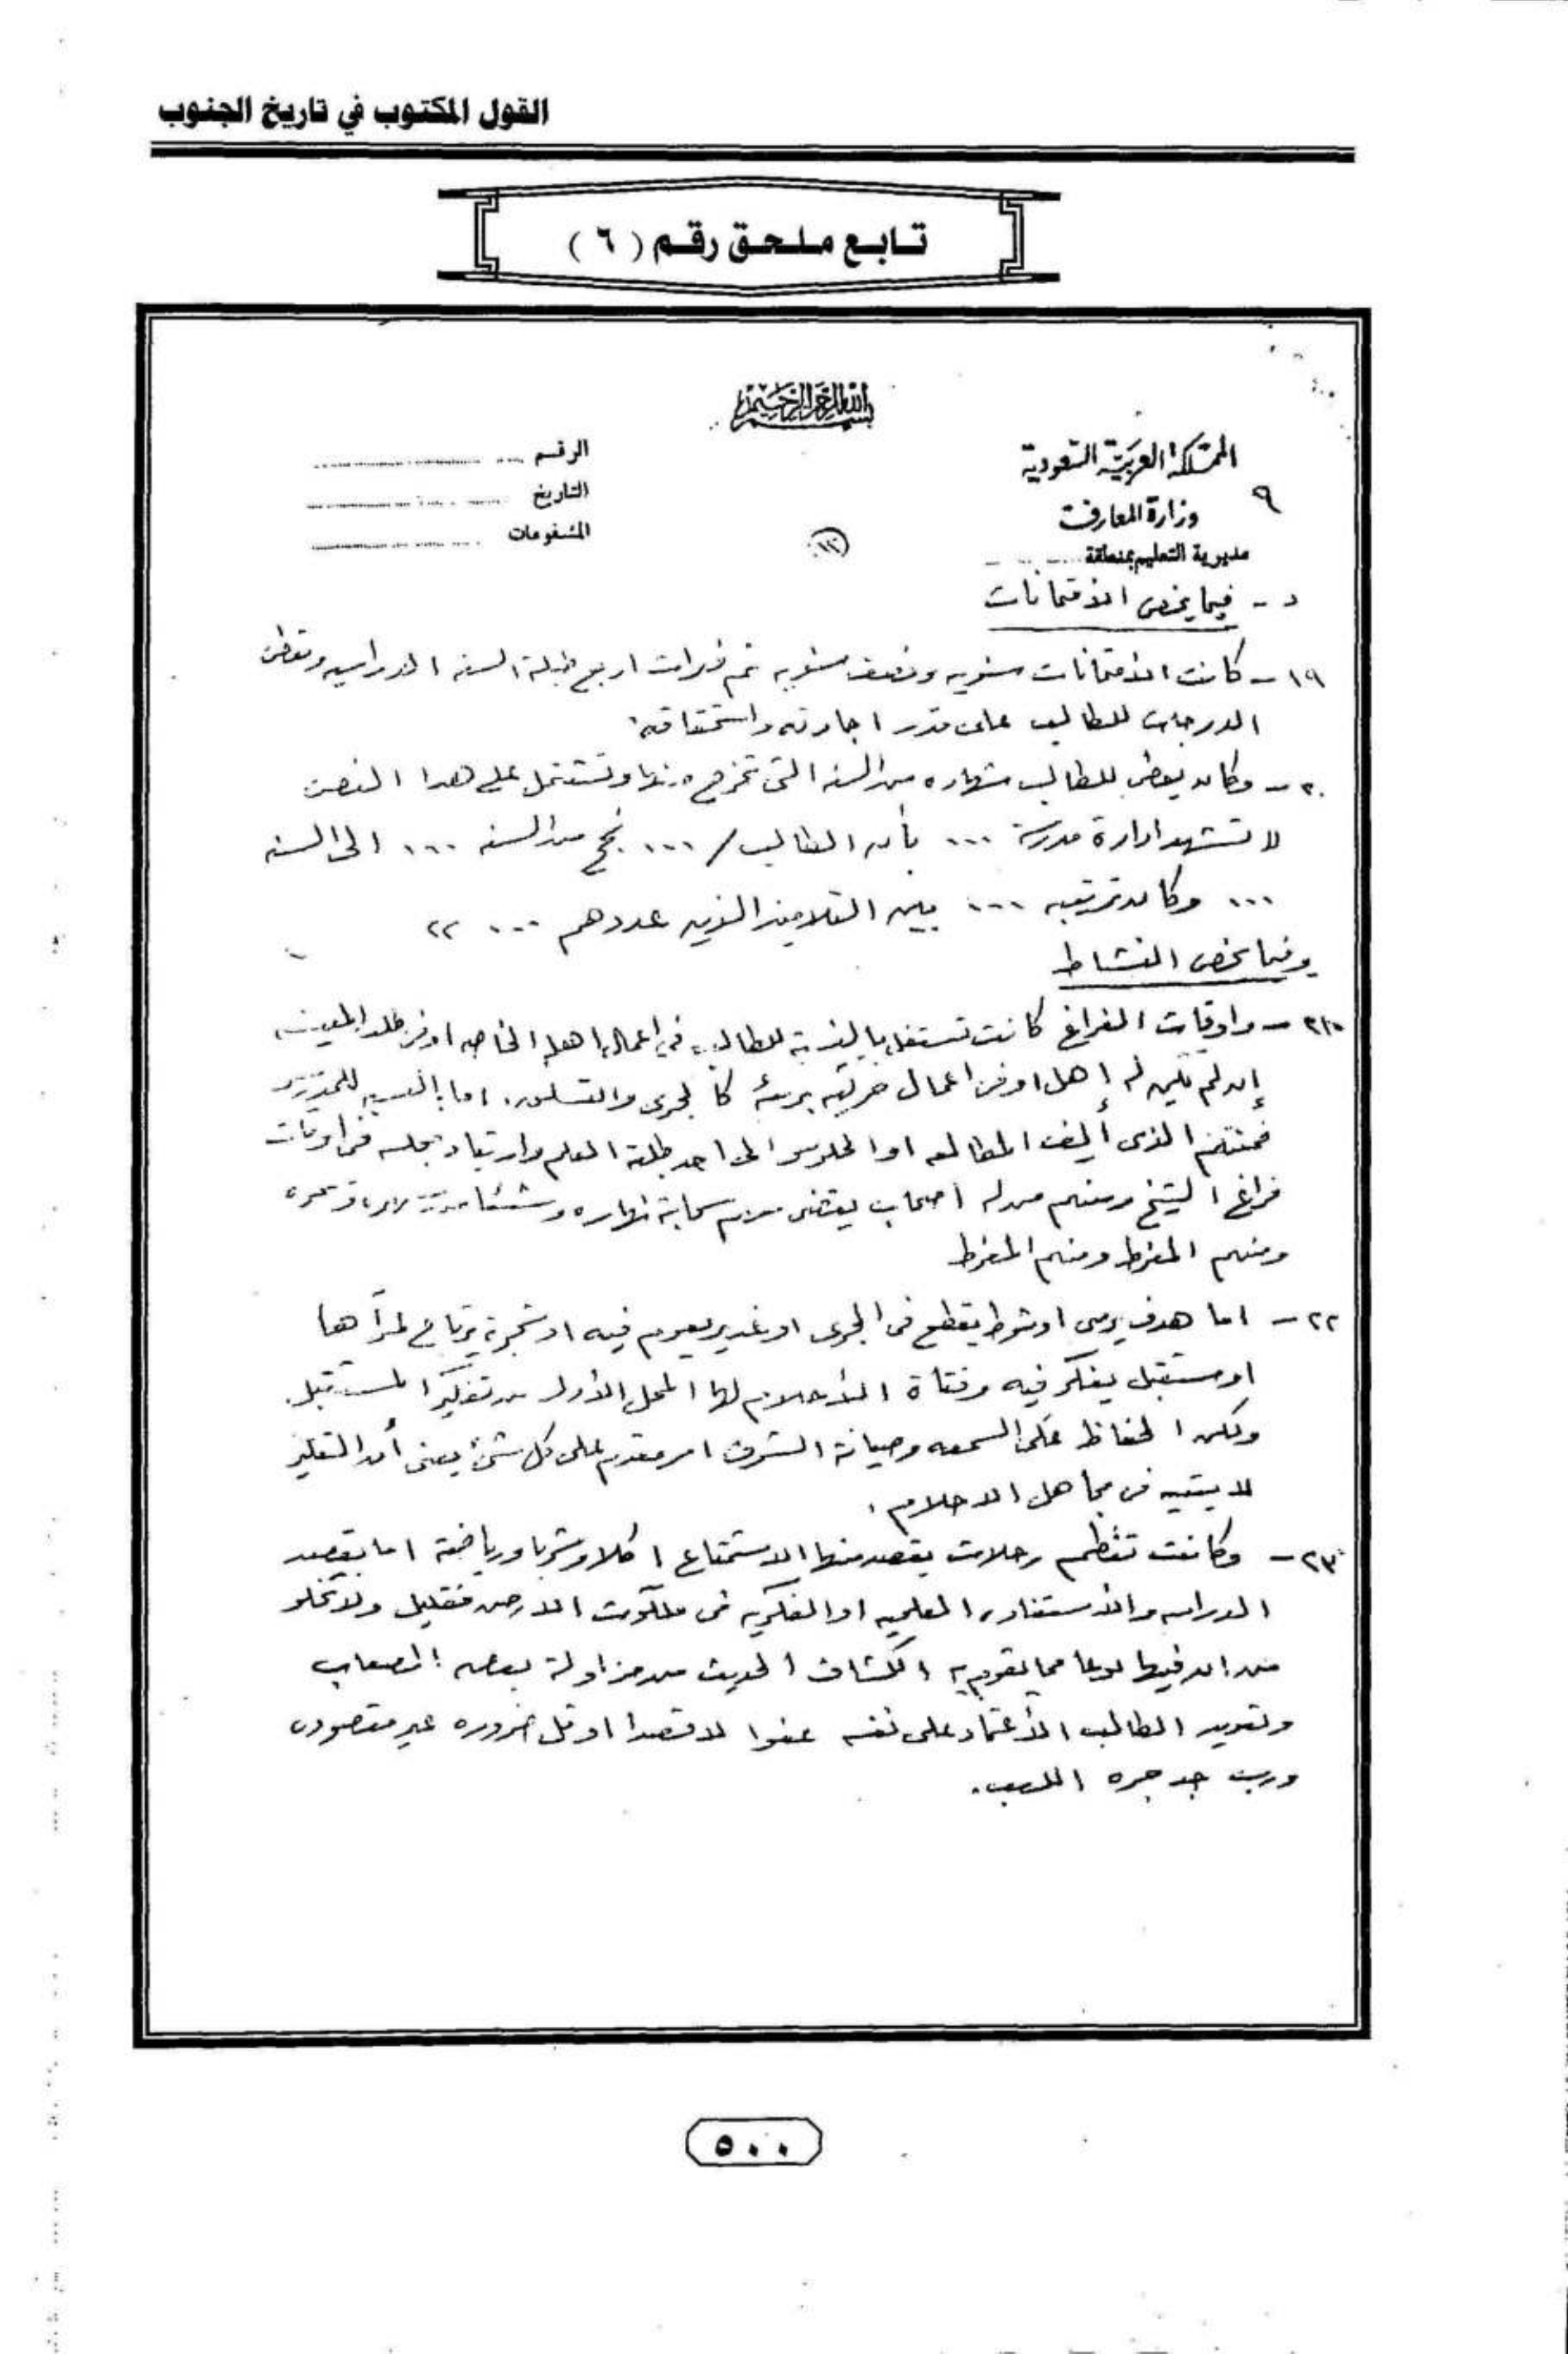 القول المكتوب في تاريخ الجنوب
تابع ملحق رقم ( ٦ )
بسم الله الرحمن الرحيم
المملكة العربية السعودية
وزارة المعارف
مديرية التعليم بمنطقة
٩
الرقم
التاريخ
المشفوعات
د - فيما يخص الامتحانات
١٩ - كانت الامتحانات سنويه ونصف سنويه ثم فترات اربع خلال السنه الدراسيه وتعطى
الدرجات للطالب على قدر اجادته واستحقاقه.
٢٠ - وكان يعطى للطالب شهاده من السنه التى تخرج منها وتشتمل على هذا النص
لا تشهد ادارة مدرسة ... بأن الطالب / ... نجح من السنه ... الى السنه
... وكان ترتيبه ... بين التلاميذ الذين عددهم ... ››
وفيما يخص النشاط
٢١ - واوقات الفراغ كانت تستغل بالنسبة للطالب فى اعمال اهله الخاصه او فى طلب المعيشه
إن لم يكن له إهل او فى اعمال حركيه بريئه كالجرى والتسلق. اما بالنسبه
فمنهم الذى ألف المطالعه او الجلوس الى احد طلبة العلم وارتياد مجلسه فى اوقات
فراغ الشيخ ومنهم من له اصحاب يقضى معهم سحابة نهاره وشيئا من
ومنهم المفرط ومنهم المفرط
٢٢ - اما هدف يرمى او شوط يقطع فى الجرى او غدير يعوم فيه او شجرة يرتاع لمرآها
او مستقبل يفكر فيه وفتاة الأحلام لها المحل الأول من تفكير المستقبل.
ولكن الحفاظ على السمعه وصيانة الشرف امر مقدم على كل شئ يعنى أن التفكير
لا يتيه فى مجاهل الاحلام.
٢٣ - وكانت تنظم رحلات يقصد منها الاستمتاع اكلا وشربا ورياضة اما بقصد
الدراسه والاستفاده العلميه او الفكريه فى ملكوت الارض فقليل ولا تخلو
من ان فيها نوعا مما يقوم به الكشاف الحديث من مزاولة بعض الصعاب
وتعويد الطالب الأعتماد على نفسه عفوا لا قصدا او قل ضروره غير مقصوده
ورب جد جره اللعب.
٥٠٠